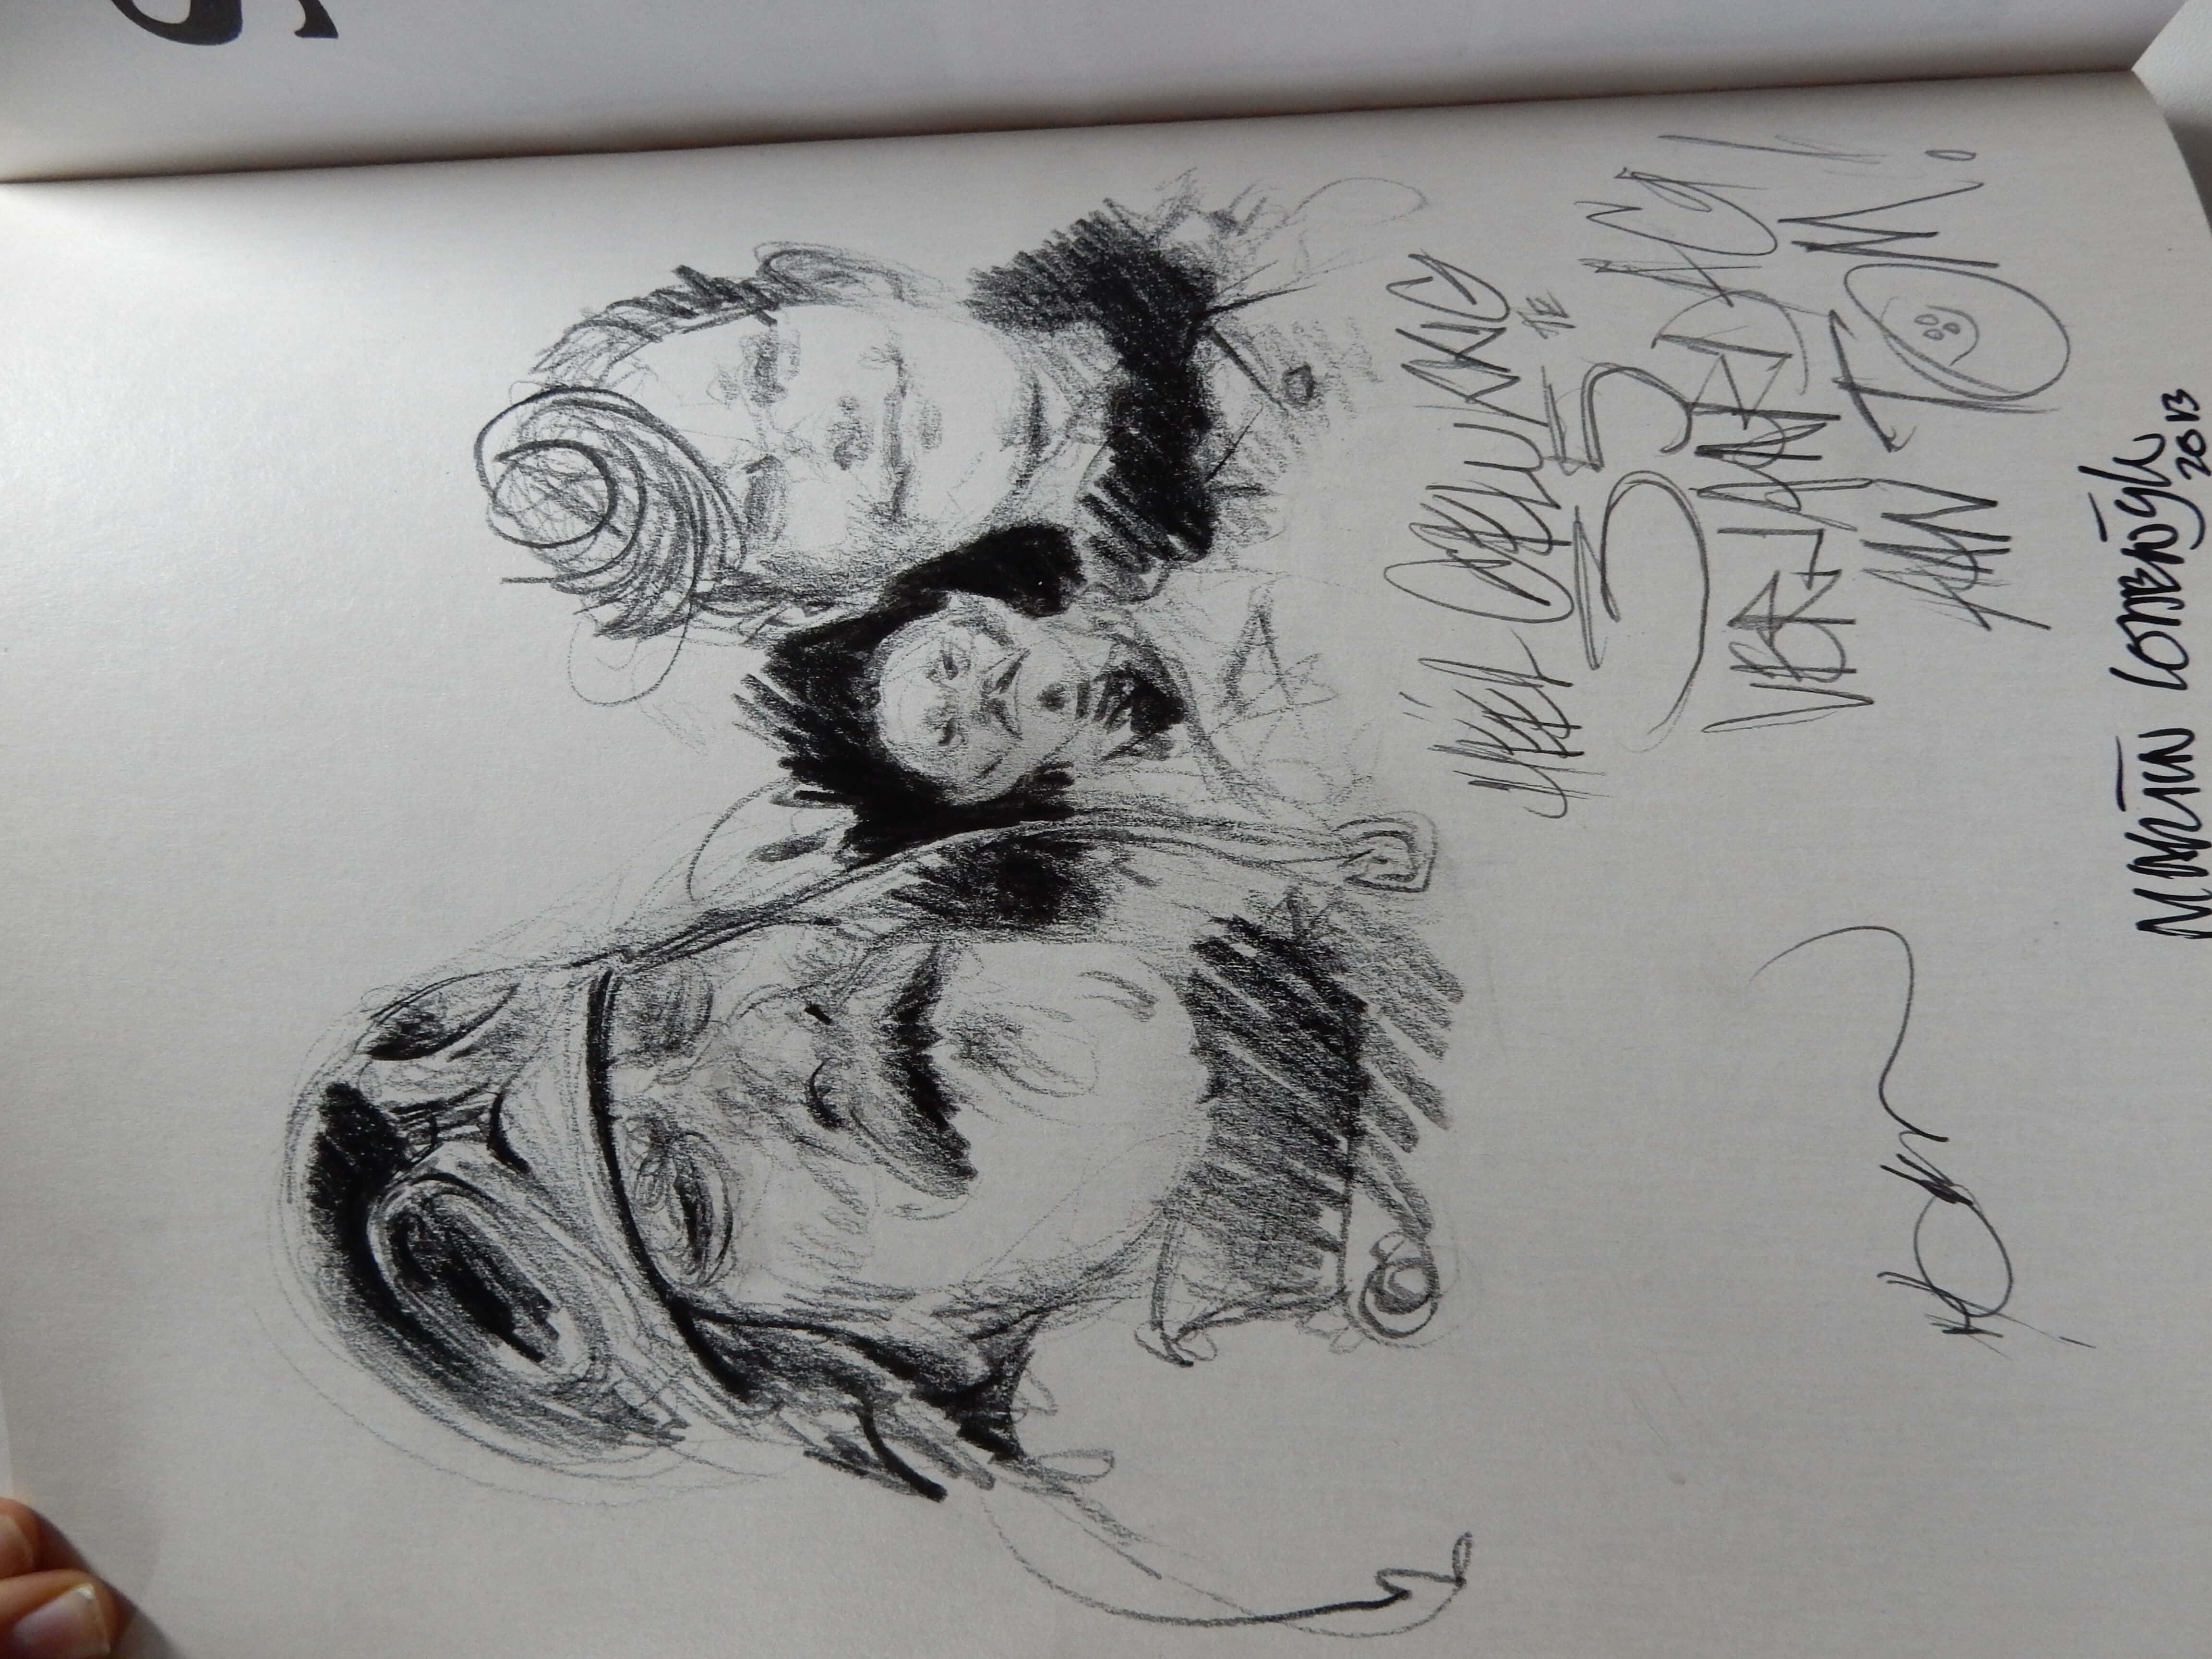 HÉÉL GELUKKIG
35 TE
VERJAARDAG
AAN TOM!
MARTIN LODEWIJK
2013